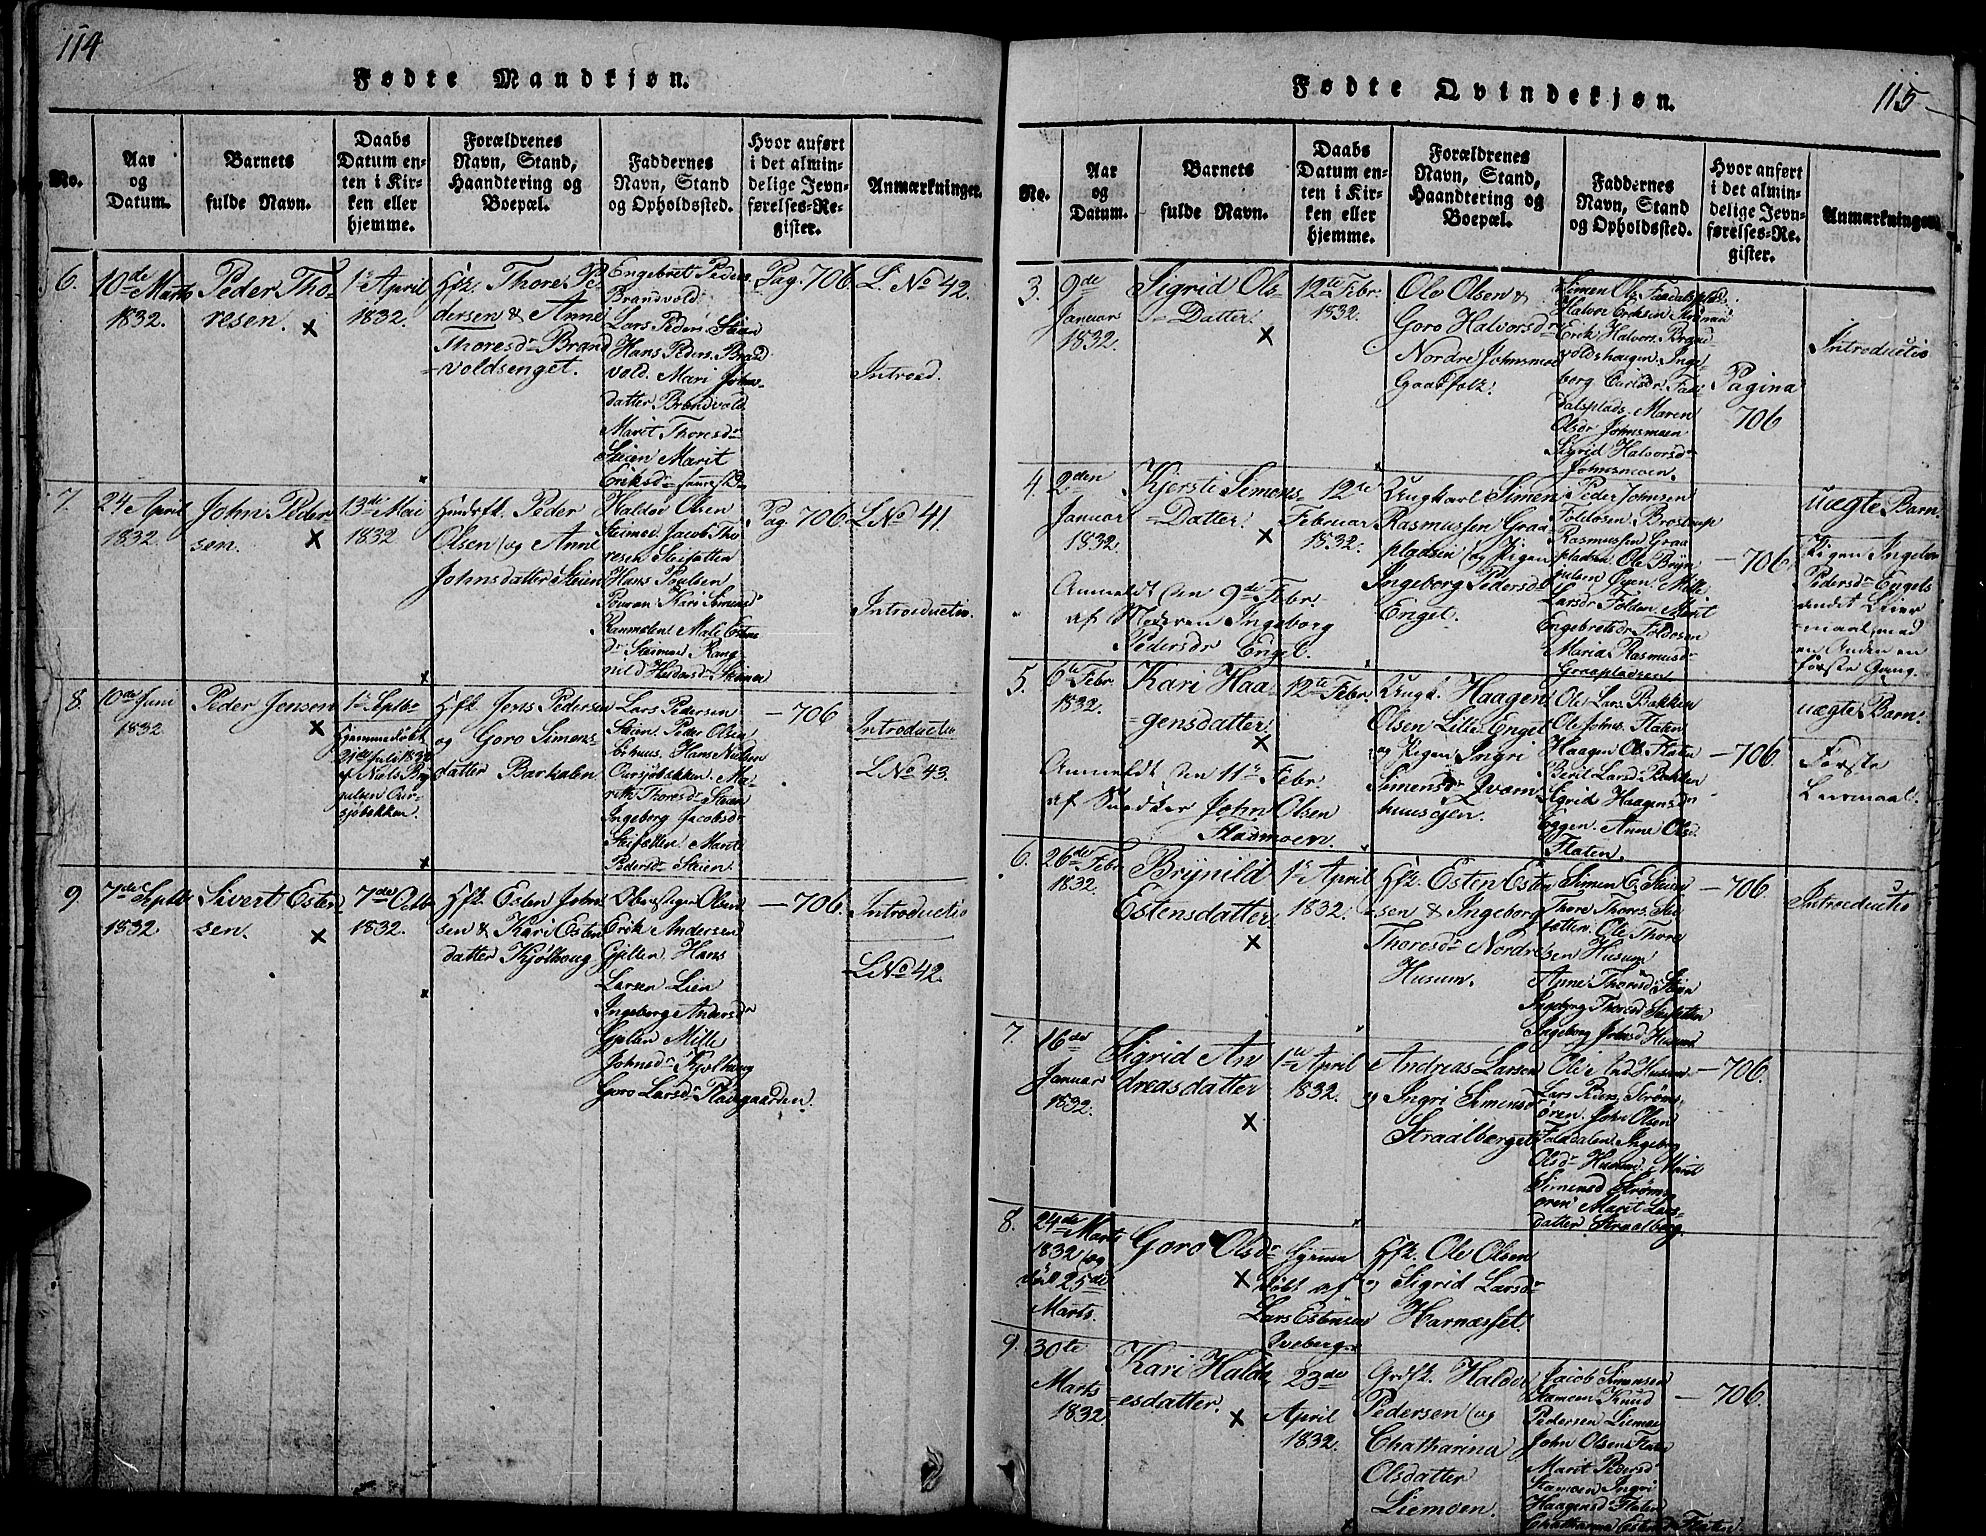 114
Fødte Mandkjøn.
No.
Aar
og
Datum.
Barnets
fulde Navn.
Daabs
Datum en-
ten i Kir-
ken eller
hjemme.
Forældrenes
Navn, Stand,
Haandtering og
Boepæl.
Faddernes
Navn, Stand
og Opholdssted.
Hvor anført
i det almin-
delige Jevn-
førelses-Re-
gister.
Anmærkninger.
6.
10de Marts
1832.
Peder Tho-
resen.
1te April
1832.
Hfk. Thore Pe-
dersen & Anne
Thoresdr Brand
-voldsenget.
Engebret Peders
Brandvold
Lars Peders Steien
Hans Peders. Brand
vold. Mari Johns-
datter Brandvold
Marit Thoresdr
Steien Marit
Eriksdr
Pag. 706
L. No 42.
Introd.
7.
24 April
1832.
John Peder-
sen.
13de Mai
1832
Peder
Olsen og Anne
Johnsdatter Steien
Haldor Olsen
Steimoe. Jacob Tho
resen
Hans Poulsen
Kari Simensdr
Pag. 706
L No 41.
Introductio.
8.
10de Juni
1832
Peder Jensen
1te Septbr
Hjemmedøbt
Juli 1832
af Niels Bry
julsen Our-
sjøbekken.
Hfk Jens Pedersen
og Goro Simens-
datter Barhaln
Lars Pedersen
Steien. Peder Olsen
Hans Nielsen
Oursjøbekken. Ma-
rith Thoresdr Steien
Ingeborg Jacobsdr
Marit
Pedersdr Steien.
- 706
Introductio
L No 43.
9
7de Septbr
1832
Sivert Esten-
sen.
7de Octb
1832.
Hfk. Esten John-
sen & Kari Esten
datter Kjølhoug
Olsen
Erik Andersen
Gjelten Hans
Larsen Lien
Ingeborg Andersdr
Gjelten Mille
Johnsdr Kjølhoug
Goro Larsdr Plasgaarden.
- 706.
Introductio
L No 42.
115
Fødte Qvindekjøn.
No.
Aar
og
Datum.
Barnets
fulde Navn.
Daabs
Datum en-
ten i Kir-
ken eller
hjemme.
Forældrenes
Navn, Stand,
Haandtering og
Boepæl.
Faddernes
Navn, Stand
og Opholdssted.
Hvor anført
i det almin-
delige Jevn-
førelses-Re-
gister.
Anmærkninger.
3.
9de
Januar
1832.
Sigrid Ols-
-Datter.
12te Febr.
1832.
Ole Olsen &
Goro Halvorsdr
Nordre Johnsmoe
Gaardfolk.
Simen Ols.
Halvor Eriksen
Erik Halvors.
voldshaugen. Inge-
borg Carlsdr
dalsplads. Maren
Olsdr Johnsmoen
Sigrid Halvorsdr
Johnsmoen.
Pagina
706
Introductio
4.
2den
Januar
1832.
Kjersti Simens-
-Datter.
12te
Februar
1832.
Ungkarl Simen
Rasmussen Graa
pladsen og Pigen
Ingeborg Pedersdr
Engel.
Anmeldt den 9de Febr.
af Moderen Ingeborg
Pedersdr Engel.
Peder Johnsen
Foldosen.
Rasmussen Graa
pladsen. Ole Bryn
julsen Øyen. Mille
Larsdr Folden. Marit
Engebretsdr Foldosen
Maria Rasmusdr
Graapladsen
- 706
uægte Barn.
Pigen Ingebor
Pedersdr Engels
andet Leier
-maal, med
en Anden en
første Gang.
5.
6te Febr
1832.
Kari Haa-
-gensdatter.
12te Febr.
Ungk. Haagen
Olsen Lille Engel
og Pigen Ingri
Simensdr Qvarn
huusøjen.
Anmeldt den 11te Febr.
af Snedker John Olsen
Stadmoen.
Ole Lars. Bakken
Ole Johns. Flaten
Haagen Ols. Flaten
Beril Larsdr Bakken
Sigrid Haagensdr
Eggen. Anne Olsd
Flaten.
- 706
uægte Barn.
Første
Leiermaal.
6.
26de Febr
1832.
Brynild
Estensdatter
1te April
1832.
Hfk. Esten Esten
-sen & Ingeborg
Thoresdr Nordre
Husum.
Simen E. Steien
Thore Thores.
Ole Thore
sen Husum
Anne Thoresdr
Ingeborg Thoresd
Ingeborg Johnsd Husum
- 706
Introductio
7.
16de
Januar
1832.
Sigrid An
dreasdatter
1te April
1832.
Andreas Larsen
og Ingri Simensd
Straalberget
Ole And Husum
Lars Peders. Strøm
øren. John Olsen
Foldalen. Ingeborg
Olsdr Husum. Marit
Simensd Strøm
øren. Marit Lars-
datter Straalberg.
- 706.
8.
24de Marts
1832 og
død 25de
Marts.
Goro Olsdr
Hjemme
døbt af
Lars Estensen
Qveberg.
Hfk. Ole Olsen
og Sigrid Larsdr
Harnæsset.
9.
30te
Marts
1832
Kari Haldo
-esdatter.
23de
April
1832.
Grdfk. Haldo
Pedersen og
Chatharina
Olsdatter
Liemoen.
Jacob Simensen
Stamoen Knud
Pedersen Liemoe
John Olsen Flate
Marit Pedersd
Stamoen Ingri
Haagensd Flaten
Chatharina Estensd Flaten
- 706.